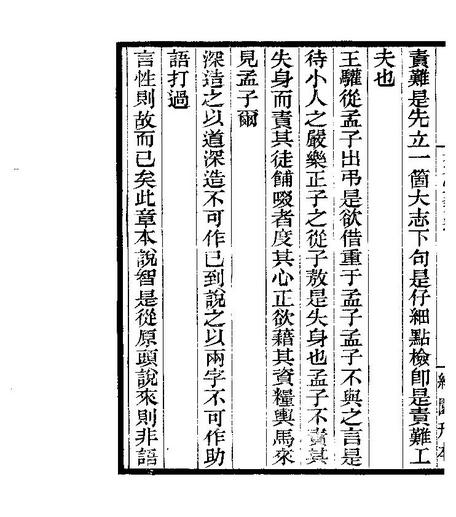 責難是先立一箇大志下句是仔細點檢卽是責難工
夫也
王驩從孟子出弔是欲借重于孟子孟子不與之言是
待小人之嚴樂正子之從子敖是失身也孟子不責其
失身而責其徒餔啜者度其心正欲藉其資糧輿馬來
見孟子爾
深造之以道深造不可作已到說之以兩字不可作助
語打過
言性則故而已矣此章本說智是從原頭說來則非語